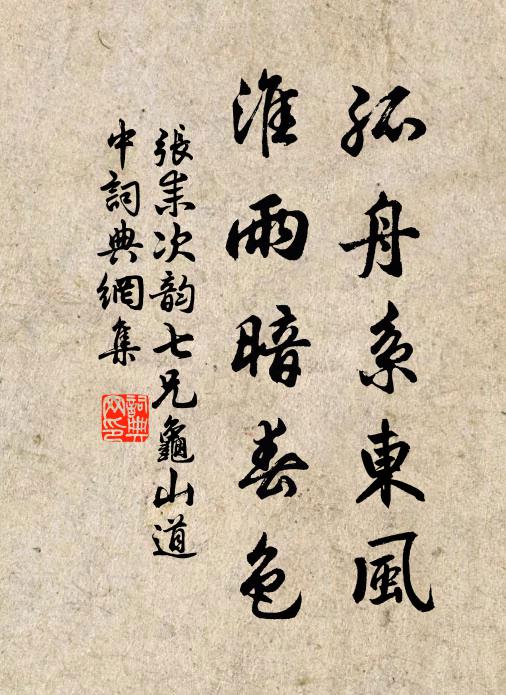 孤舟系東風
淮雨暗春色
張耒次韵七兄龜山道
中詞典網集
詞典网印